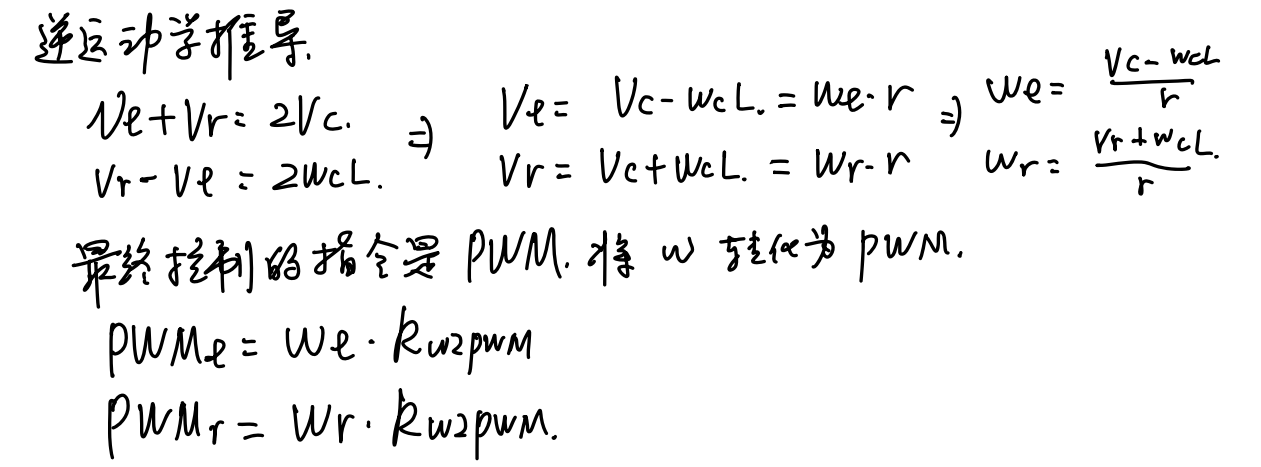 逆运动学推导.
Vℓ+Vr=2Vc. ⇒ Vℓ= Vc-wcL.=wℓ·r ⇒ wℓ= (Vc-wcL)/r
Vr-Vℓ=2wcL. Vr= Vc+wcL.=wr·r wr= (Vr+wcL.)/r
最终控制的指令是 PWM. 将 w 转化为 PWM.
PWMℓ= wℓ·kw2pwM
PWMr= wr·kw2pwM.